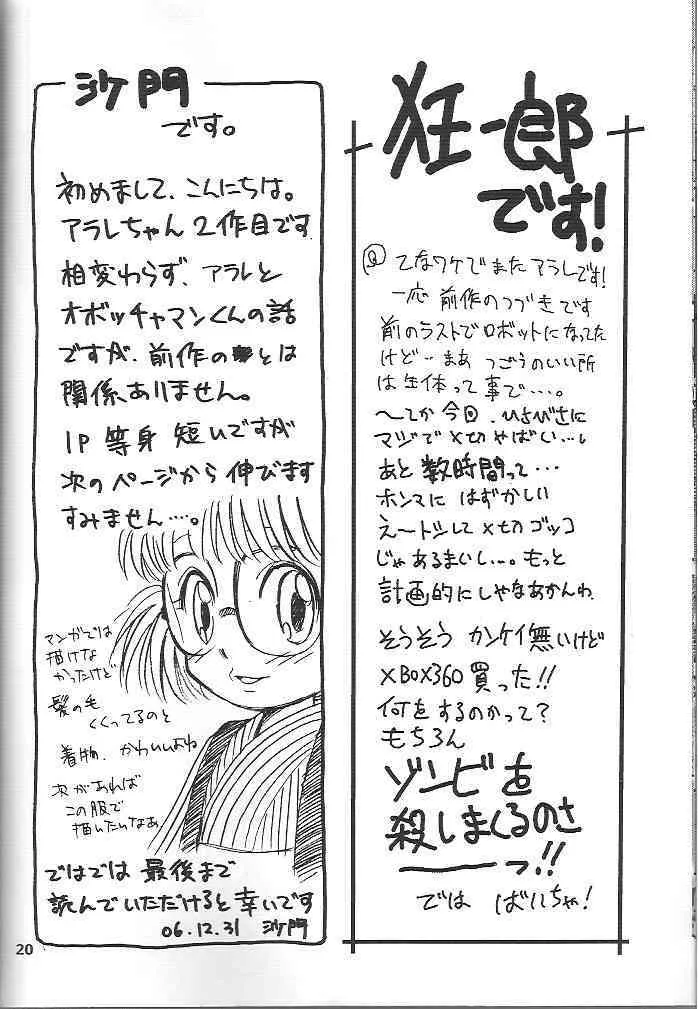 沙門
です。
初めまして、こんにちは。
アラレちゃん 2作目です
相変わらず、アラレと
オボッチャマンくんの話
ですが、前作のとは
関係、ありません。
1P 等身 短いですが
次のページから 伸びます
すみません…。
マンガでは
描けな
かったけど
髪の毛
くくってるのと
着物、かわいいよね
次があれば
この服で
描いたいなあ
ではでは 最後まで
読んでいただけると 幸いです
06.12.31 沙門
狂一郎
です!
てなワケで また アラレです!
一応 前作のつづきです
前のラストでロボットになってた
けど‥まあ つごうのいい所
は生体って事で…。
〜てか 今回、ひさびさに
マジで〆切やばい…。
あと 数時間って…
ホンマに はずかしい
え〜トシして 〆切 ゴッコ
じゃあるまいし…。もっと
計画的にしゃなあかんわ
そうそう カンケイ無いけど
XBOX360 買った!!
何をするのかって?
もちろん
ゾンビを
殺しまくるのさ
──っ!!
では ばいちゃ!
20